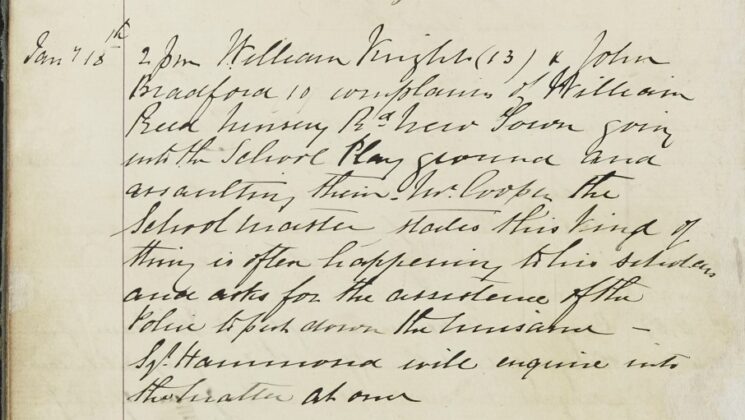 Jany 18th 2 pm William Knight (13) & John
Bradford 10 complains of William
Reed Nursery Rd New Town going
into the School Play ground and
assaulting them. Mr. Cooper the
Schoolmaster states this kind of
thing is often happening to his scholars
and asks for the assistance of the
Police to put down the nuisance –
Sgt. Hammond will enquire into
the matter at once